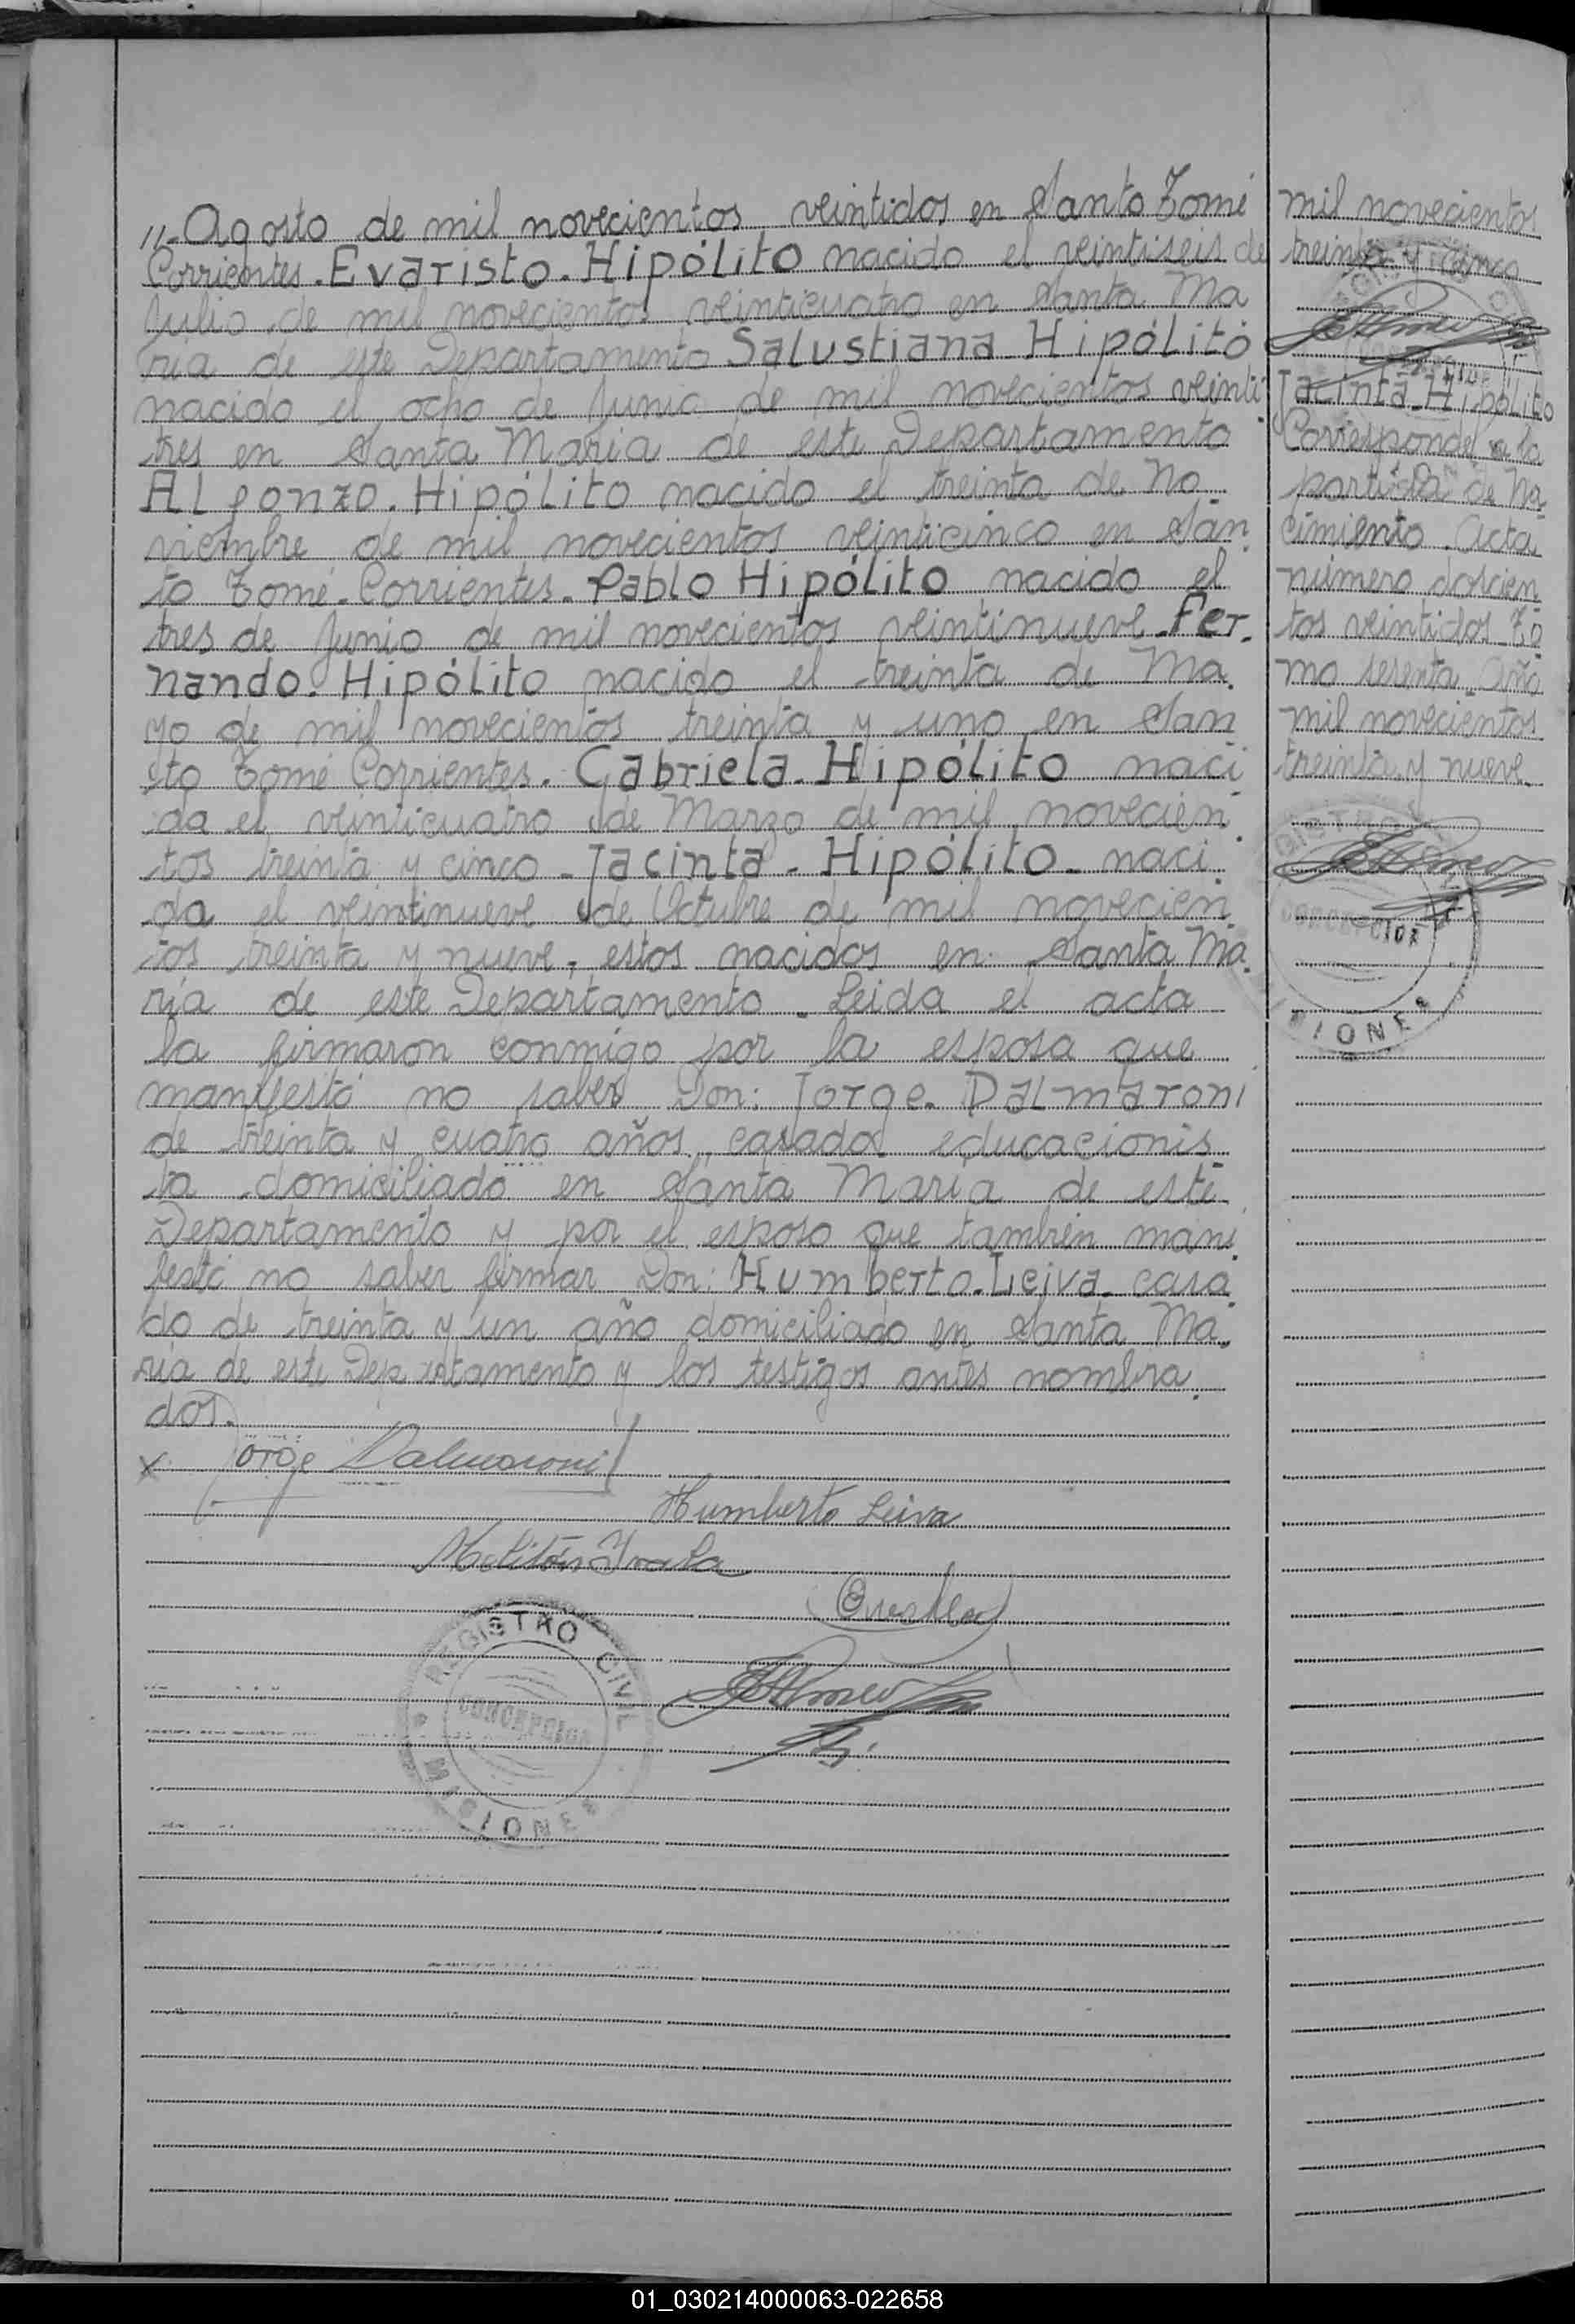 11-Agosto de mil novecientos veintidos en Santo Tomé
Corrientes. Evaristo. Hipólito nacido el veintiseis de
Julio de mil novecientos veinticuatro en Santa Ma
ria de este Departamento Salustiana Hipólito
nacido el ocho de Junio de mil novecientos veinti
tres en Santa Maria de este Departamento
Alfonzo. Hipólito nacido el treinta de No.
viembre de mil novecientos veinticinco en San
to Tomé. Corrientes. Pablo Hipólito nacido el
tres de Junio de mil novecientos veintinueve. Fer.
nando. Hipólito nacido el treinta de Ma.
yo de mil novecientos treinta y uno en San
to Tomé Corrientes. Gabriela. Hipólito naci
da el veinticuatro de Marzo de mil novecien
tos treinta y cinco - Jacinta - Hipólito - naci.
da el veintinueve de Octubre de mil novecien
tos treinta y nueve, estos nacidos en Santa Ma.
ria de este Departamento. Leida el acta
la firmaron conmigo por la esposa que
manifestó no saber Don: Jorge. Dalmaroni
de treinta y cuatro años, casado educacionis
ta domiciliado en Santa Maria de este
Departamento y por el esposo que también mani
festó no saber firmar Don: Humberto. Leiva. casa
do de treinta y un año domiciliado en Santa Ma.
ria de este Departamento y los testigos antes nombra.
dos.
x Jorge Dalmaroni
Humberto Leiva
Melitón
REGISTRO CIVIL
CONCEPCION
MISIONES
mil novecientos
treinta y cinco
Jacinta Hipólito
Corresponde a la
partida de Na
cimiento. Acta
número doscien
tos veintidos To
mo sesenta. Año
mil novecientos
treinta y nueve.
GISTRO
CONCEPCION
IONES
01_030214000063-022658